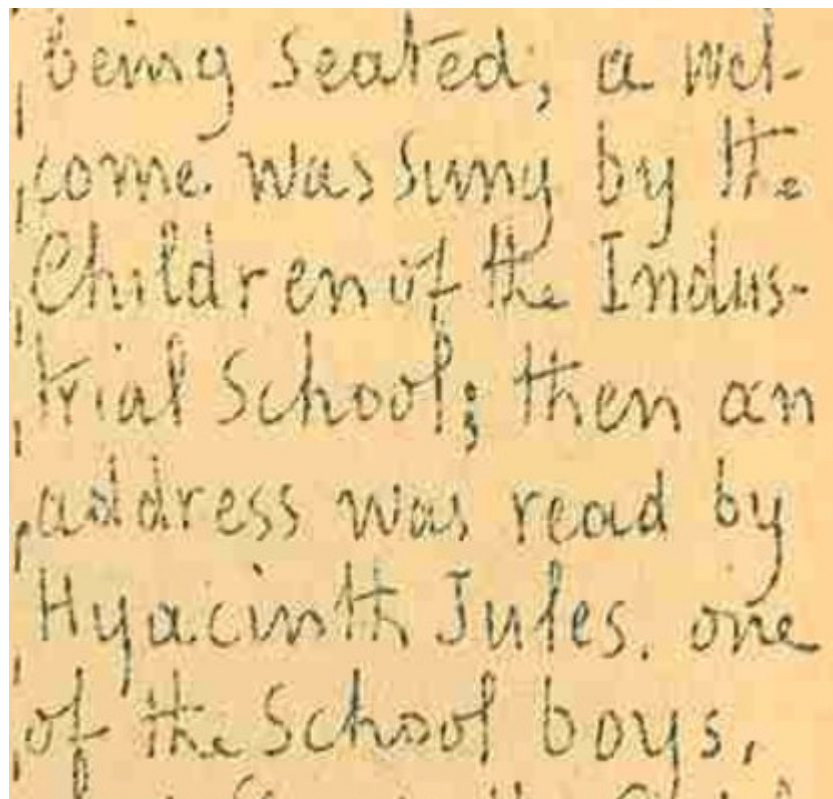 being seated, a wel-
come. was sung by the
Children of the Indus-
trial School; then an
address was read by
Hyacinth Jules. one
of the School boys,